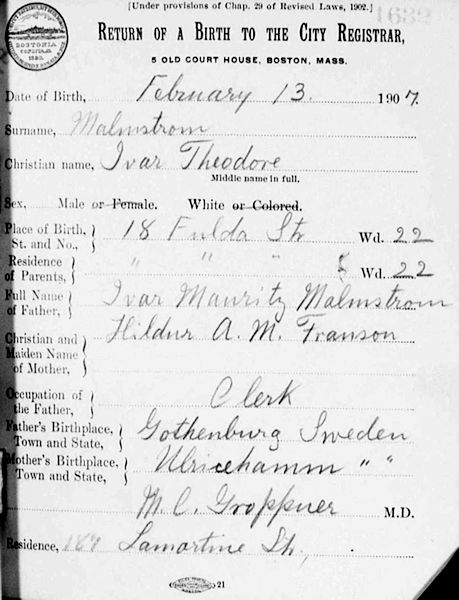 [Under provisions of Chap. 29 of Revised Laws, 1902.]
1632
RETURN OF A BIRTH TO THE CITY REGISTRAR,
5 OLD COURT HOUSE, BOSTON, MASS.
BOSTONIA
CONDITA A.D.
1630.
Date of Birth, February 13. 1907.
Surname, Malmstrom
Christian name, Ivar Theodore
Middle name in full.
Sex, Male or Female. White or Colored.
Place of Birth, St. and No., 18 Fulda St. Wd. 22
Residence of Parents, " " " Wd. 22
Full Name of Father, Ivar Mauritz Malmstrom
Christian and Maiden Name of Mother, Hildur A. M. Franson
Occupation of the Father, Clerk
Father's Birthplace, Town and State, Gothenburg Sweden
Mother's Birthplace, Town and State, Ulricehamm " "
M. C. Groppner M.D.
Residence, 187 Lamartine St.,
21